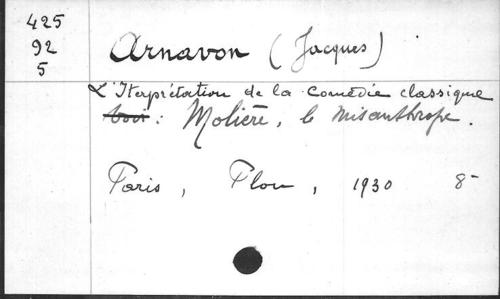 425
92
5
Arnavon (Jacques)
L'Iterprétation de la comédie classique
voir : Molière, le misanthrope.
Paris, Plon, 1930 8°